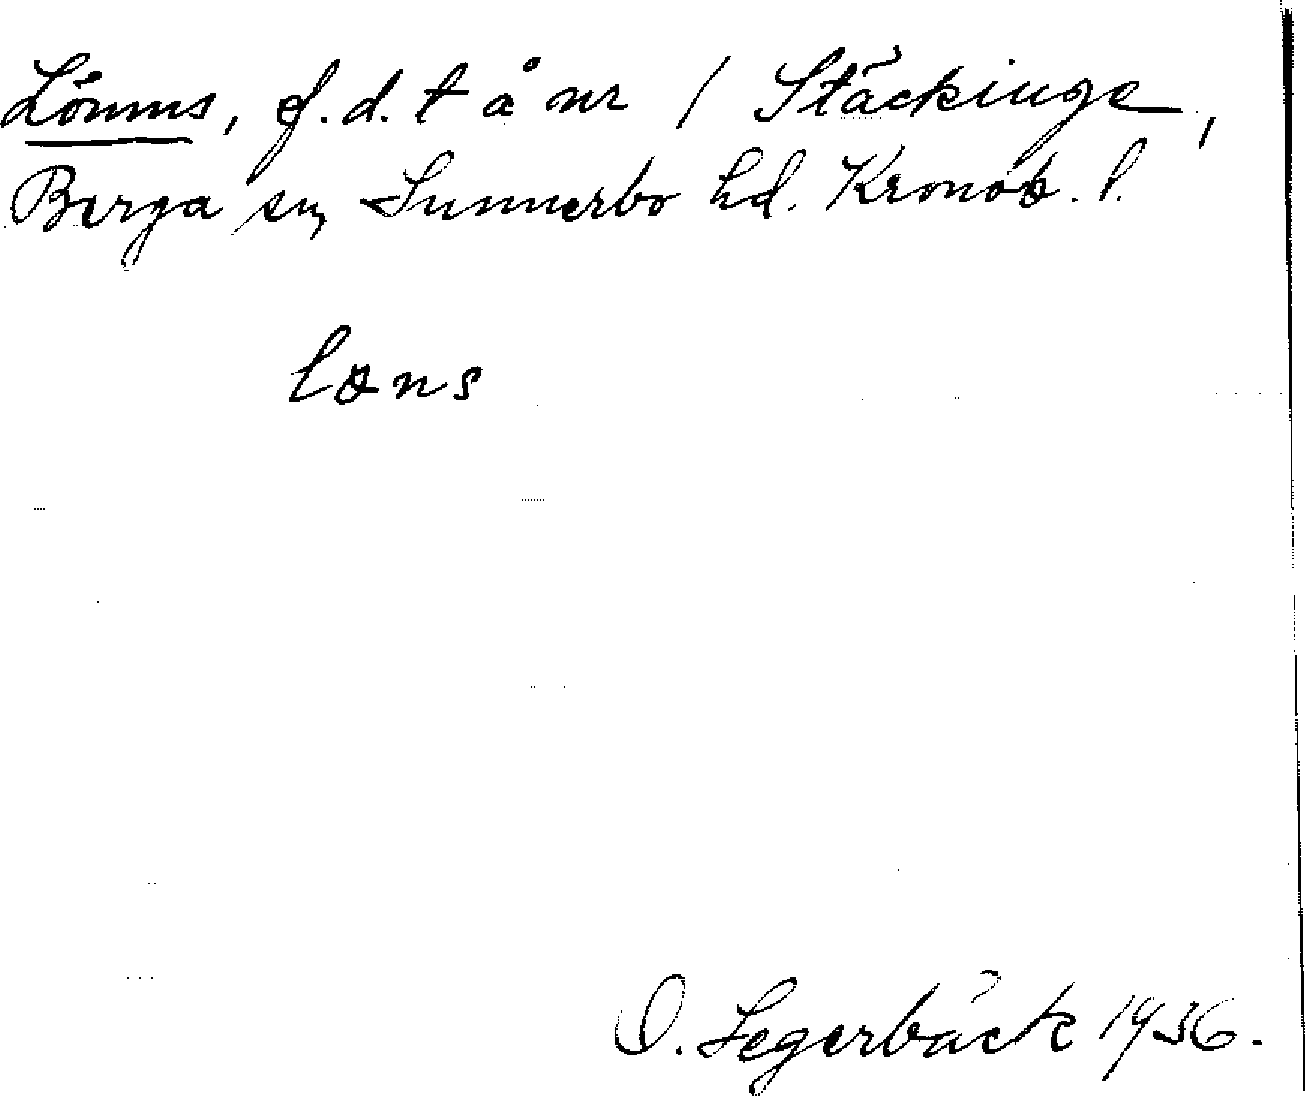 Lönns, f.d. t å nr 1 Stäckinge,
Berga sn, Sunnerbo hd. Kronob. l.
løns
O. Segerbäck 1936.